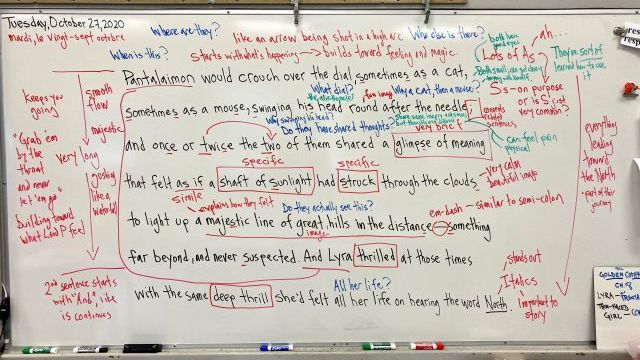 Tuesday, October 27, 2020
mardi, le vingt-sept octobre
Where are they?
When is this?
like an arrow being shot in a high arc
Who else is there?
Starts with what's happening → builds toward feeling and magic.
both have good eyes
ah...
Lots of As
They're sort of learned how to use it
Pantalaimon would crouch over the dial, sometimes as a cat,
Ss - on purpose or is S just very common?
What dial?
Why a cat, then a mouse?
sometimes as a mouse, swinging his head round after the needle;
Why swinging his head?
Do they have shared thoughts?
very brief
can feel pain physical
and once or twice the two of them shared a glimpse of meaning
specific
specific
that felt as if a shaft of sunlight had struck through the clouds
very calm beautiful image
simile
explains how they felt
Do they actually see this?
em-dash - similar to semi-colon
to light up a majestic line of great hills in the distance — something
image
far beyond, and never suspected. And Lyra thrilled at those times
stands out
All her life?
Italics
with the same deep thrill she'd felt all her life on hearing the word North.
Important to story
keeps you going
smooth flow
majestic
"Grab 'em by the throat and never let 'em go"
very long
gushing like a waterfall
building toward what L and P feel
2nd sentence starts with "And", like is continues
everything leading toward the North
part of their journey
THE GOLDEN COMPASS
CH. 8
LYRA
GIRL